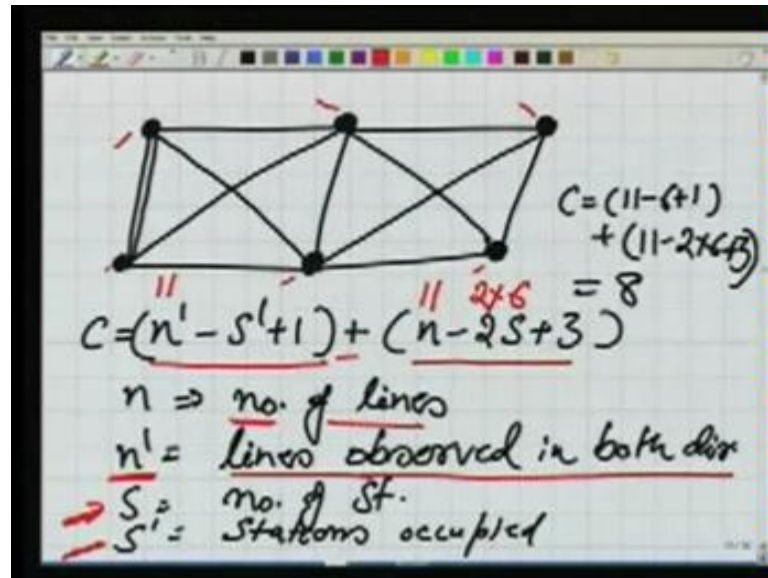 C=(11-6+1)
+(11-2×6+3)
= 8
11 11 2×6
C=(n'-s'+1)+(n-2s+3)
n ⇒ no. of lines
n' = lines observed in both dir
S = no. of St.
S' = stations occupied